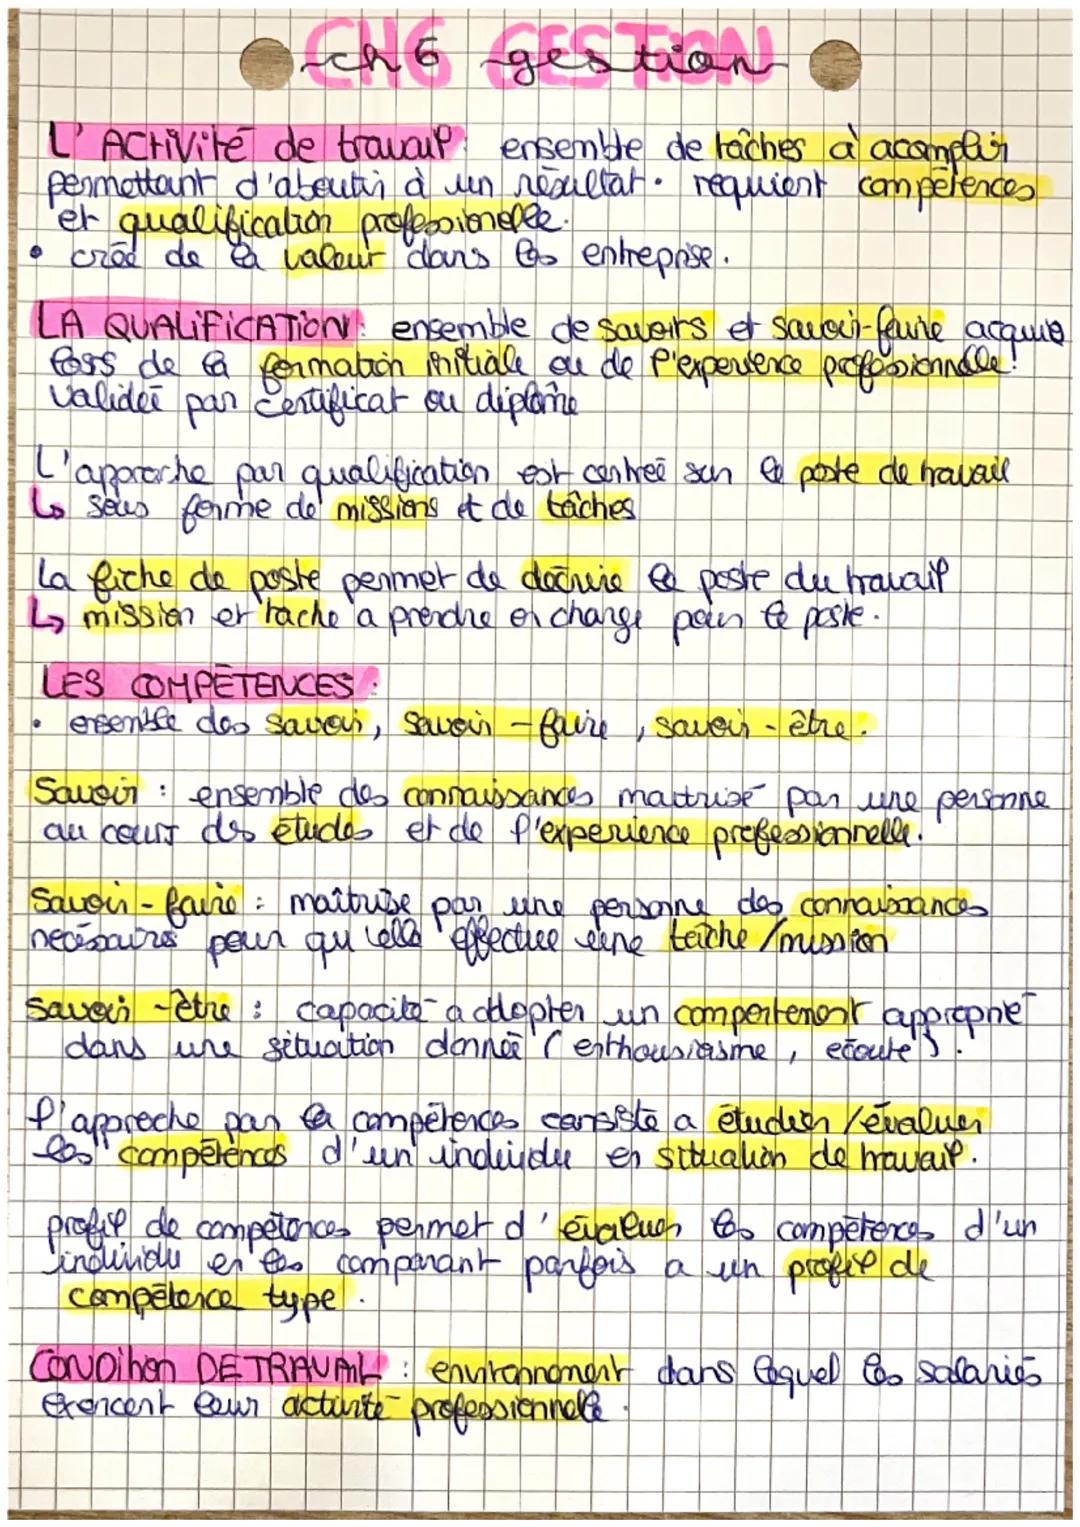 CH6 GESTION
ch6 gestion
L'ACTIVITÉ de travail : ensemble de tâches à acomplir
permettant d'aboutir à un résultat. requient compétences
et qualification professionelle.
• créé de la valeur dans les entreprise.
LA QUALIFICATION : ensemble de savoirs et savoir-faire acquis
lors de la formation initiale ou de l'experience professionnelle.
Validée par certificat ou diplôme
L'approche par qualification est centreé sur le poste de travail
↳ sous forme de missions et de tâches
La fiche de poste permet de décrire le poste du travail
↳ mission et tache a prendre en charge pour le poste.
LES COMPÉTENCES :
• ensemble des savoir, savoir-faire, savoir-être.
Savoir : ensemble des connaissances maitrisé par une personne
au cours des études et de l'experience professionnelle.
Savoir-faire : maîtrise par une personne des connaissances
necéssaires pour qu'elle effectue une tâche/mission
Savoir-être : capacité a adopter un comportement approprié
dans une situation donneé (enthousiasme, ecoute).
l'approche par la compétences consiste a étudier/évaluer
les compétences d'un individu en situation de travail.
profil de compétences permet d'évaluer les compétences d'un
individu en les comparant parfois a un profil de
compétence type.
CONDITION DE TRAVAIL : environnement dans lequel les salariés
exercent leur activité professionnelle.